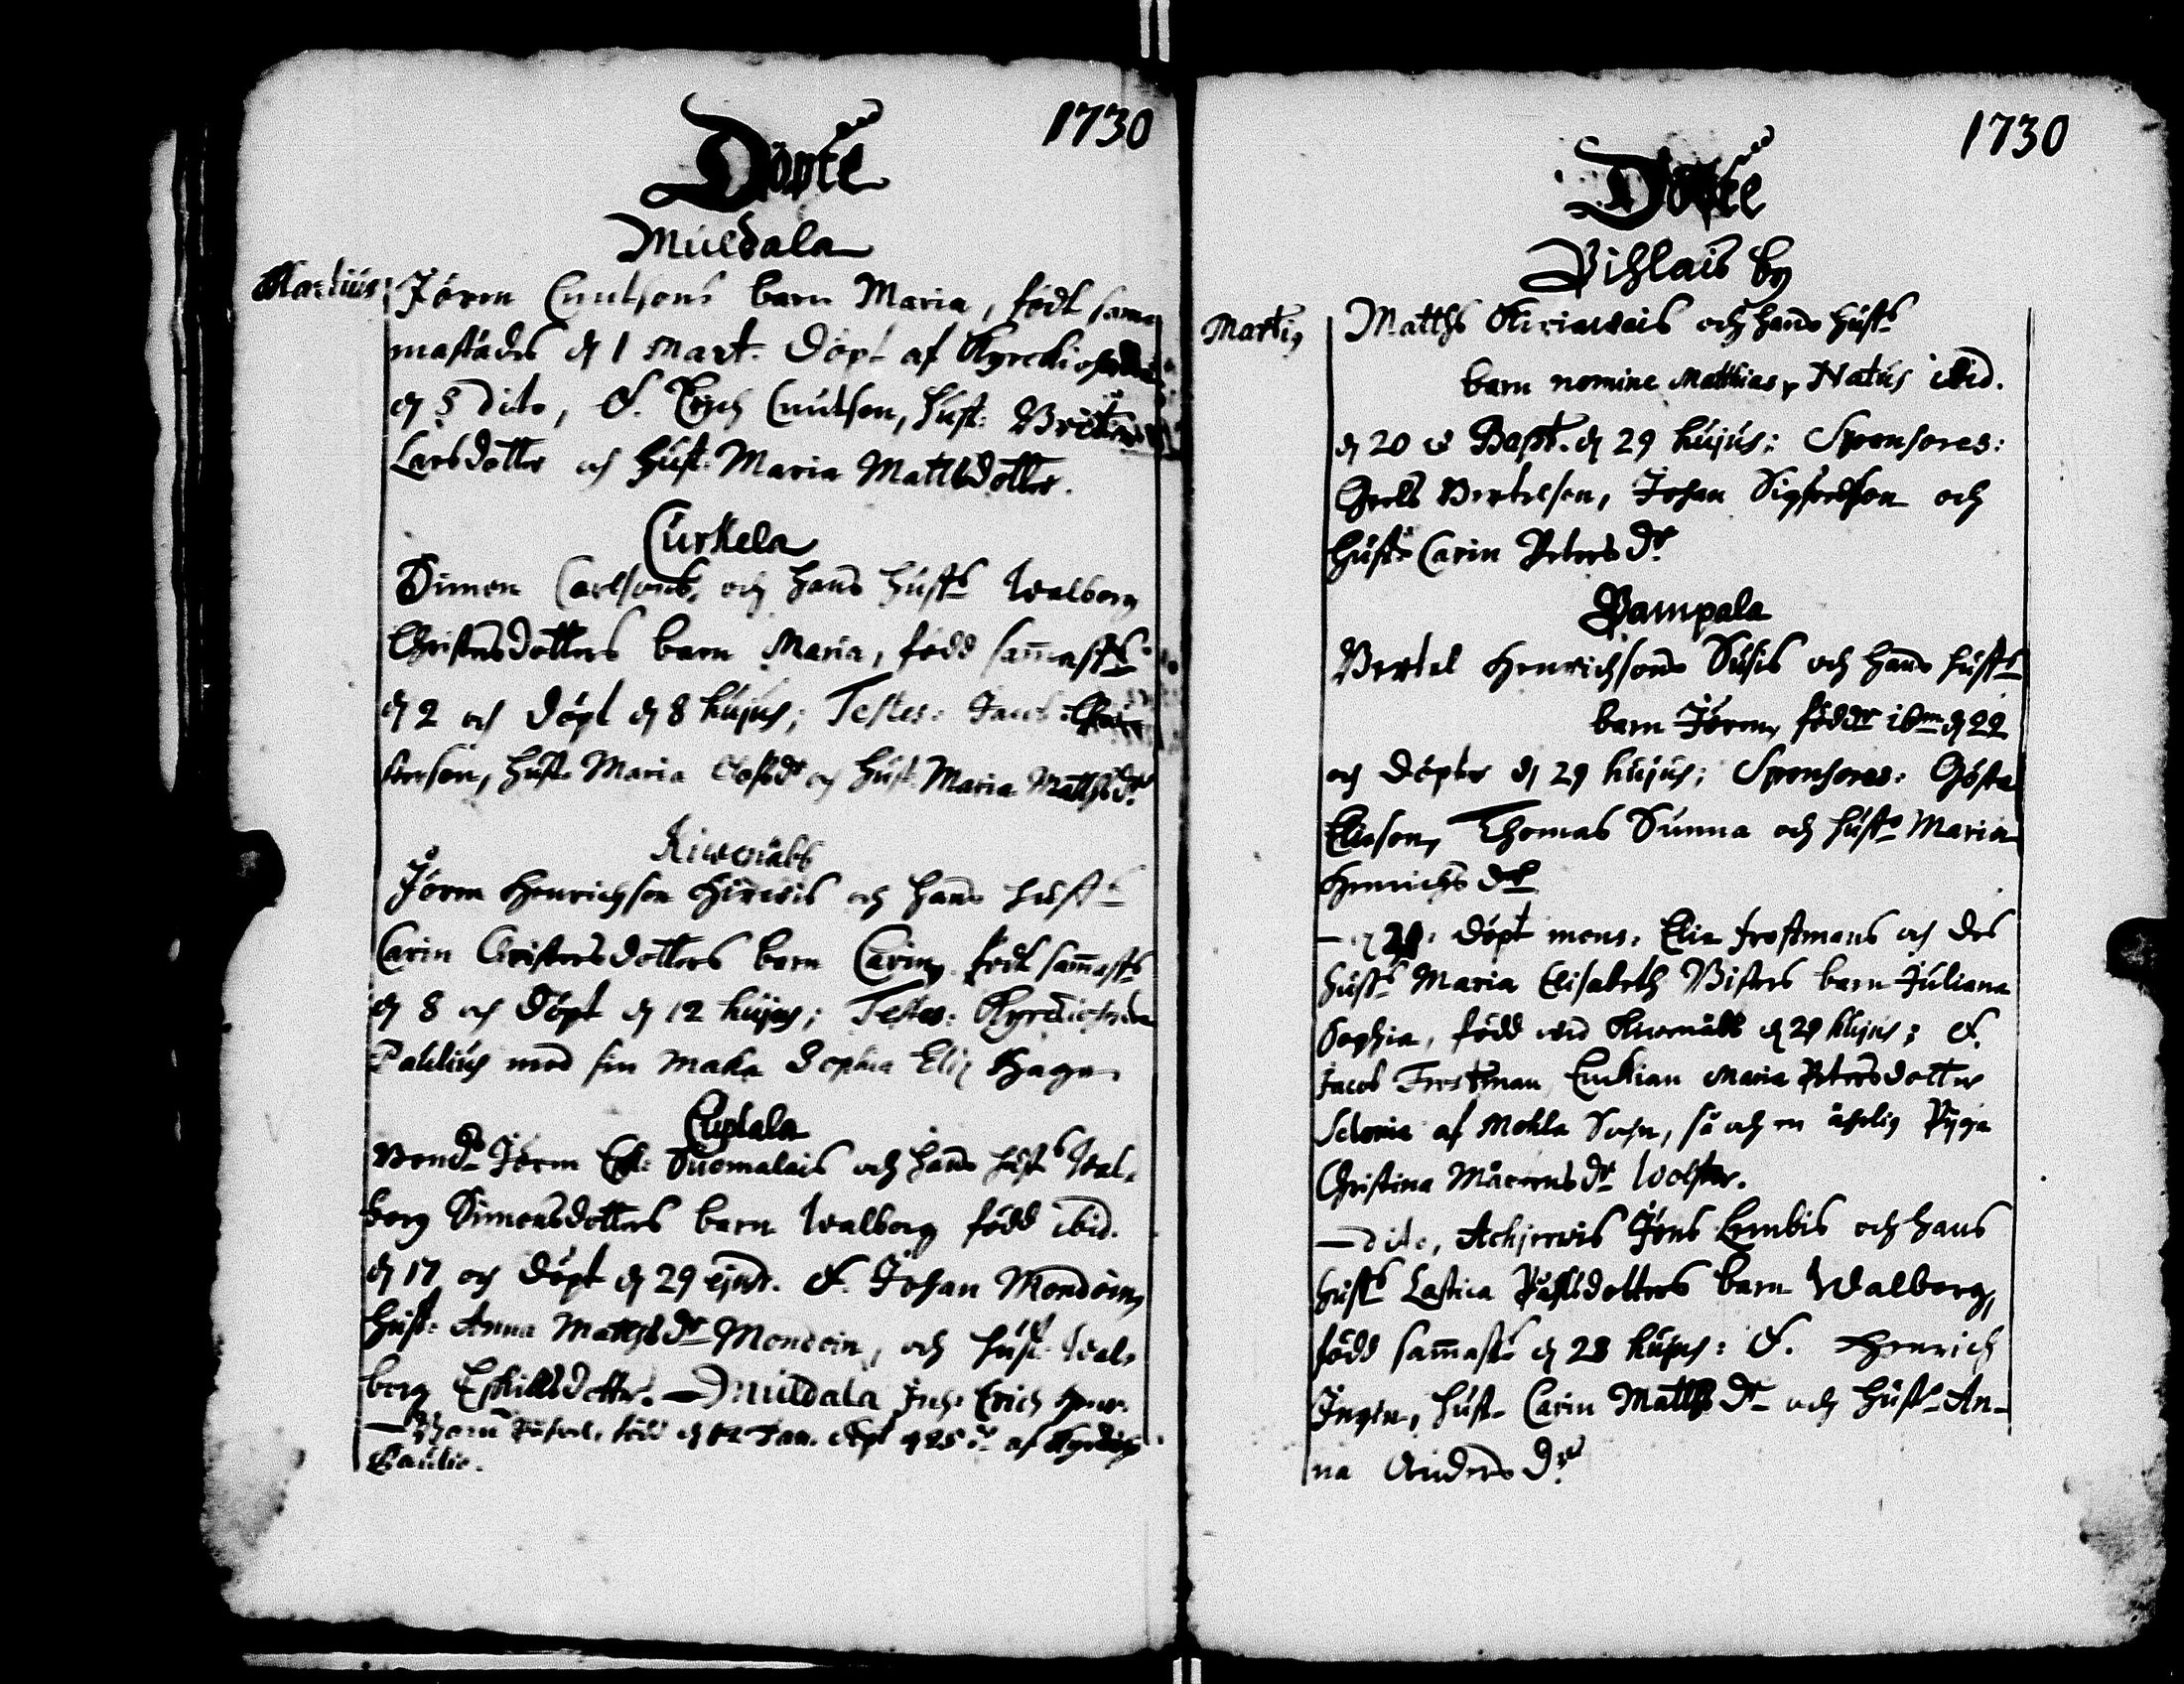 1730
Döpte
Muldala
Martius
Jören Cnutsons barn Maria, födt sam-
mastädes d 1 Mart. Döpt af Kyrckioherden
d 5 dito, F. Erich Cnutson, hust: Britha
Larsdotter och hust: Maria Mattsdotter.
Curkela
Simon Carlsons, och hans hust:s Walborg
Christersdotters barn Maria, född sam̄ast:s
d 2 och döpt d 8 hujus; Testes: Jacob Chri
sterson, hust: Maria Olofsdr och hust: Maria Matthsdr
Kiwenäbb
Jören Henrichson Hirwis och hans hust:s
Carin Christersdotters barn Carin, födt sam̄asts
d 8 och döpt d 12 hujus; Testes: Kyrckioherden
Paulius med sin maka Sophia Eliz Hagen
Cuptala
Bond: Jören Esk: Suomalais och hans hust:s Wal-
borg Simonsdotters barn Walborg född ibid.
d 17 och döpt d 29 ejusd. F. Johan Mondoin,
hust: Anna Matthsdr Mondoin, och hust: Wal-
borg Eskillsdotter. — Muldala Inh: Erich
född d 12 Jan. döpt d 25 af
Paulio.
1730
Döpte
Pihlais by
Martij
Matths och hans hust:s
barn nomine Matthias, Natus ibid.
d 20 & Bapt. d 29 hujus; Sponsores:
Grels Bertelson, Johan Sigfredson och
hust: Carin Peters Dr
Pampala
Bertel Henrichsons Susis och hans hust:s
barn Jören, födder ibm d 22
och döpter d 29 hujus; Sponsores: Gösta
Eliason, Thomas Sunna och hust: Maria
Henrichs Dr
— d 29. döpt mons. Elia Frostmans och des
hust:s Maria Elisabeth Bisters barn Juliana
Sophia, född wid Kiwenäbb d 29 hujus; F.
Jacob Frostman, Enckian Maria Petersdotter
af Mohla Sochn, så och en ährlig Pijga
Christina Mårtens Dr Wolster.
— dito, Jöns Lembis och hans
hust:s Lastica Påhlsdotters barn Walborg,
född sam̄ast:s d 28 hujus: F. Henrich
Ingin, hust: Carin Matths Dr och hust: An-
na Anders Dr